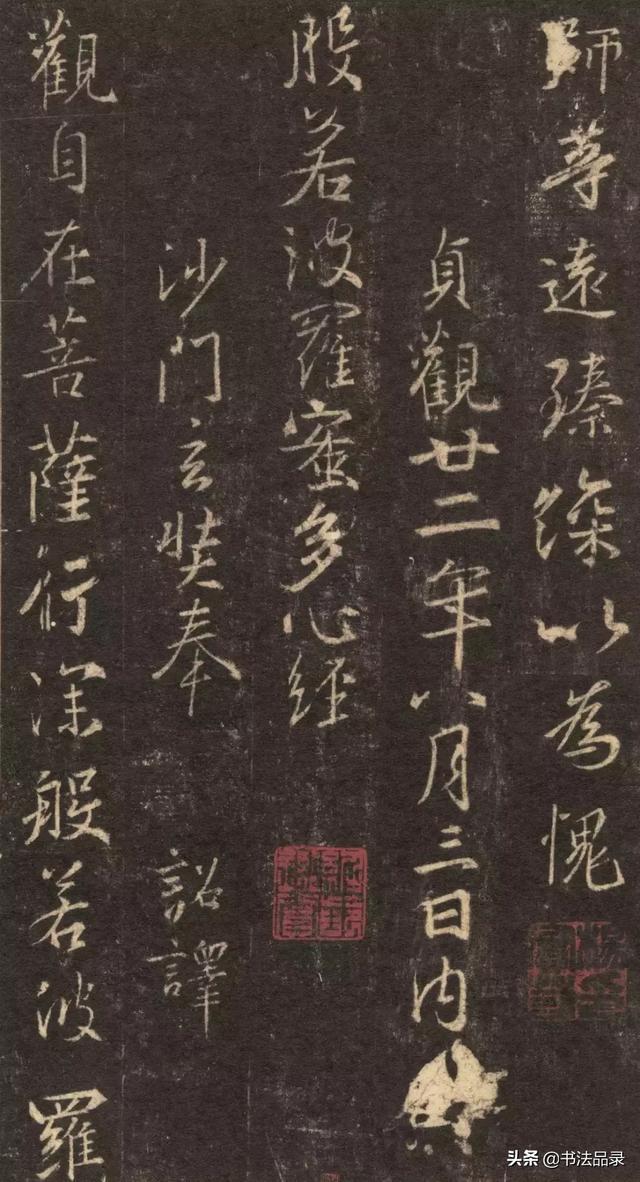 師等遠臻深以為愧
貞觀廿二年八月三日內
般若波羅蜜多心經
沙門玄奘奉 詔譯
觀自在菩薩行深般若波羅
头条 @书法品录